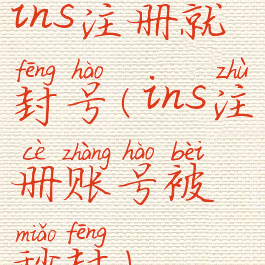 ins注册就
fēng hào zhù
封号(ins注
cè zhàng hào bèi
册账号被
miǎo fēng
秒封)